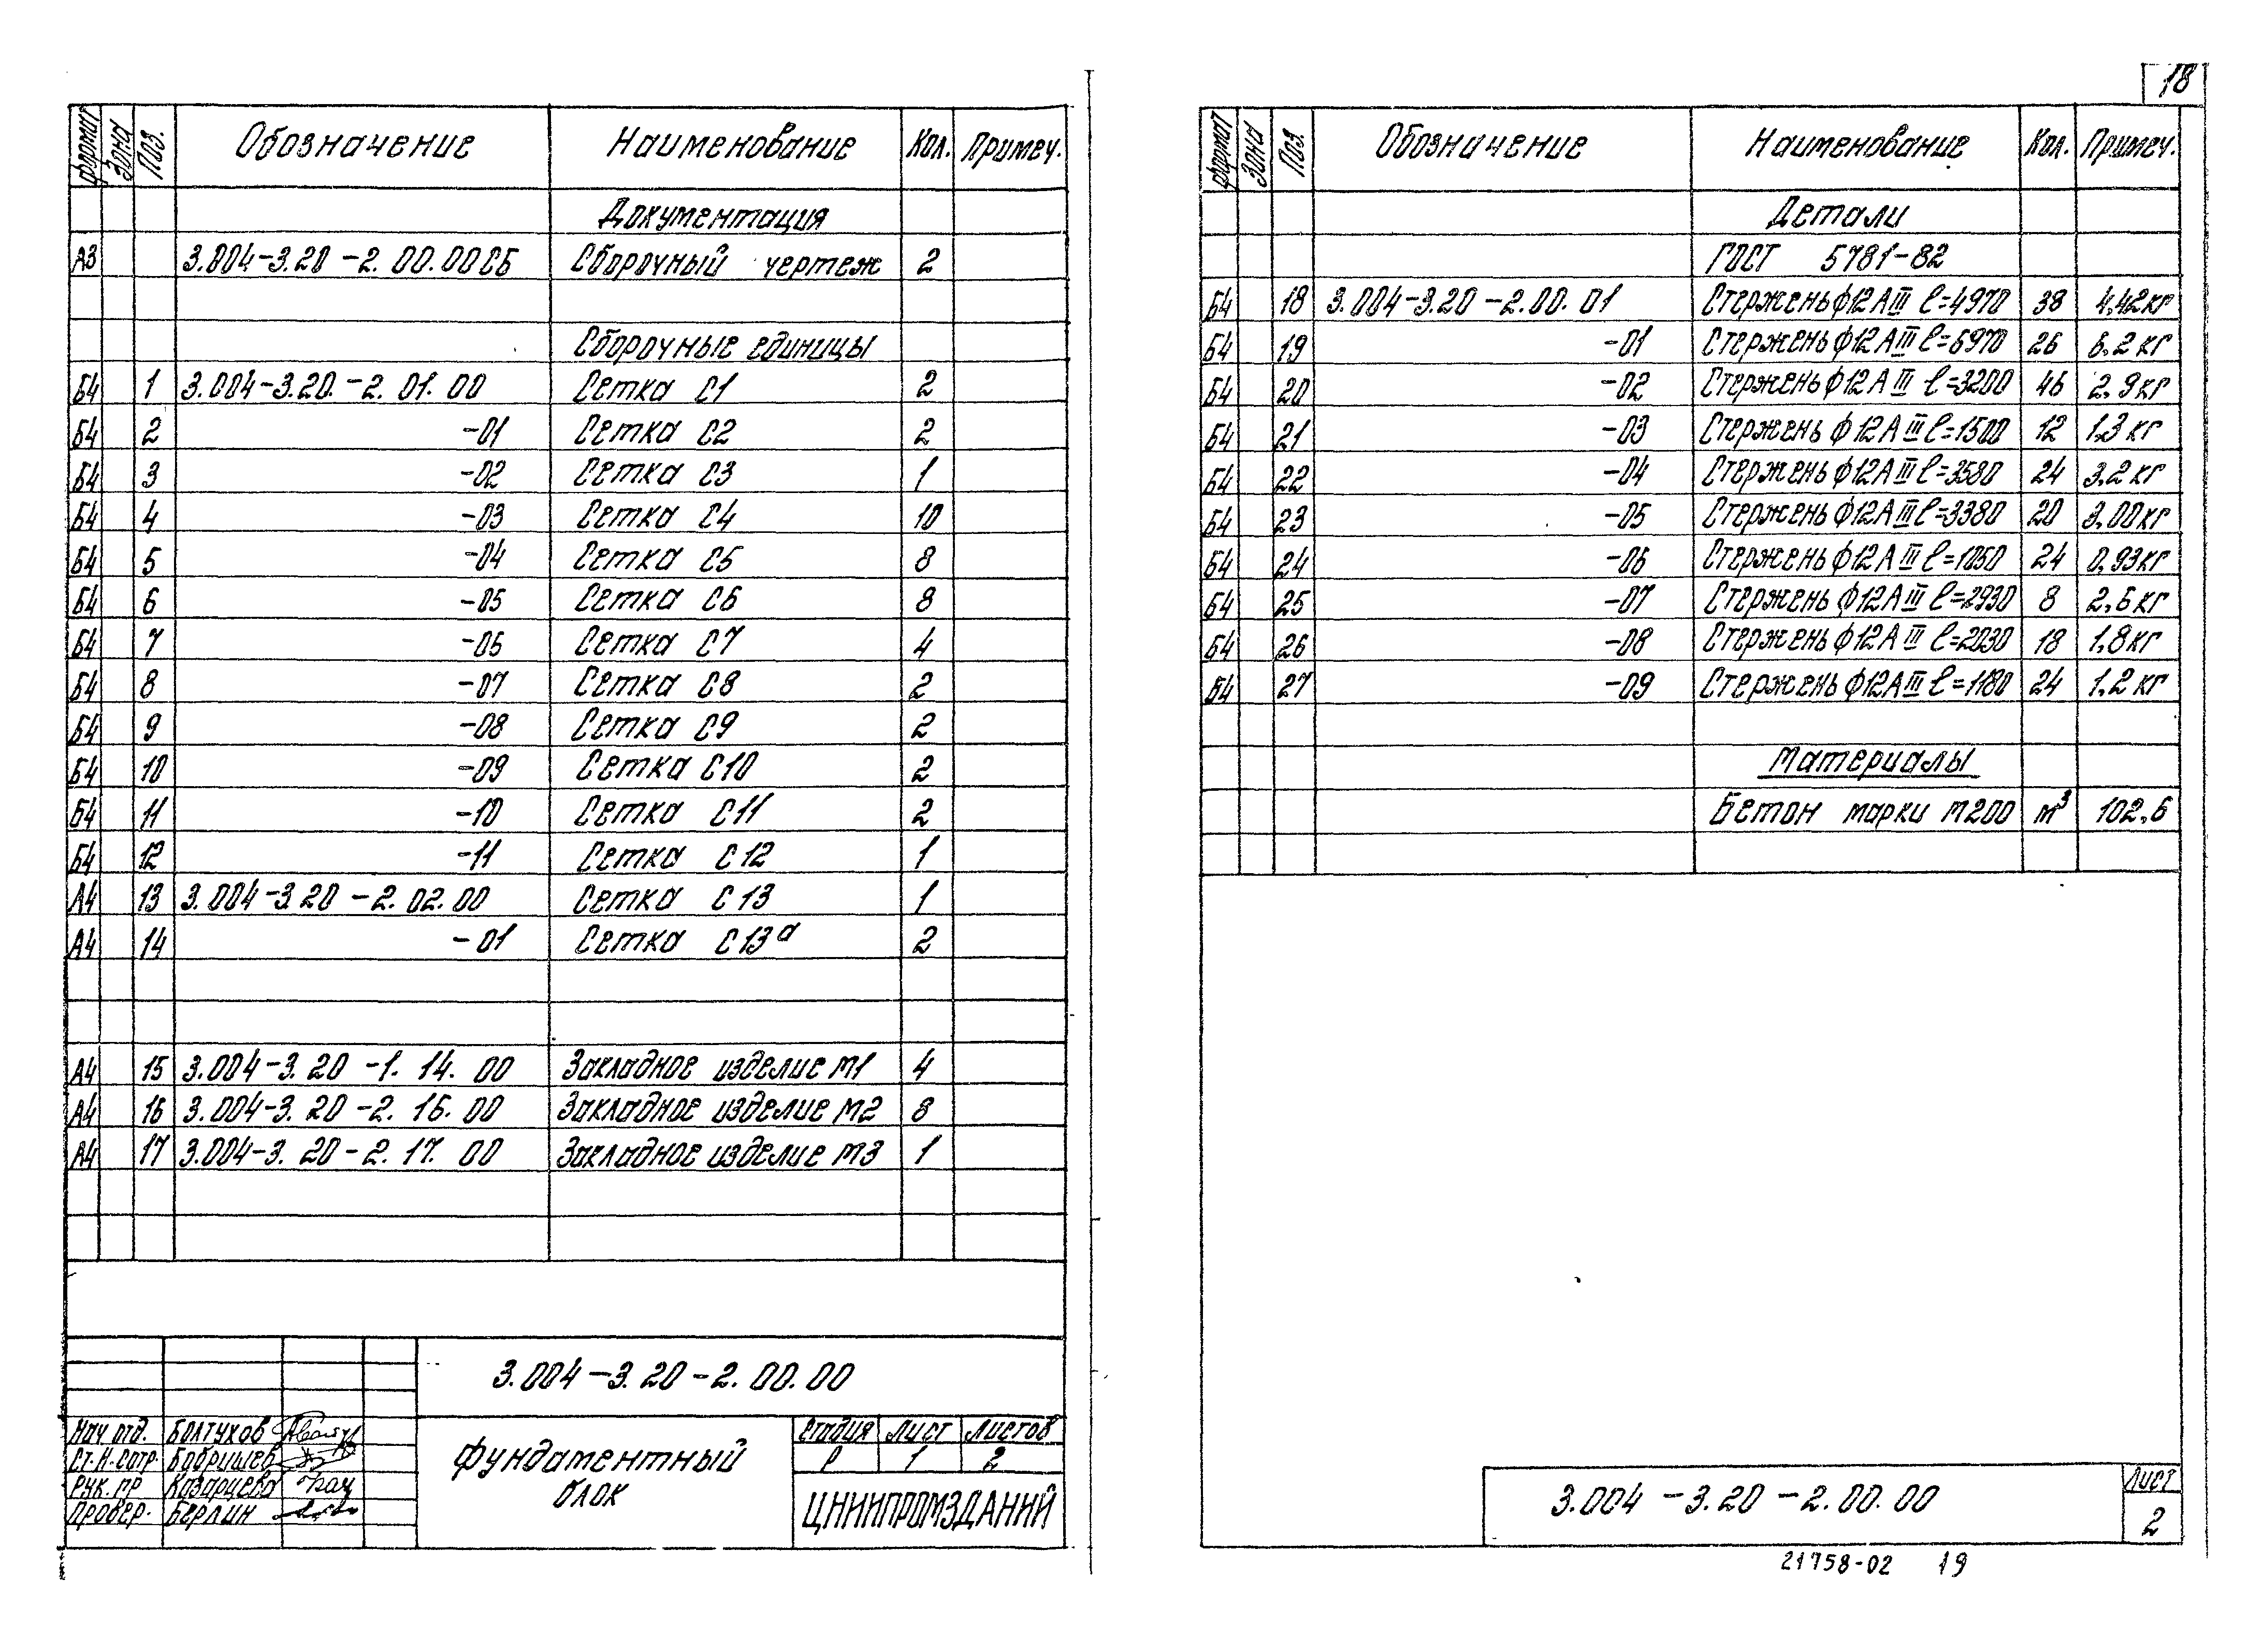 Формат Зона Поз. Обозначение Наименование Кол. Примеч.
Документация
А3 3.004-3.20-2.00.00СБ Сборочный чертеж 2
Сборочные единицы
Б4 1 3.004-3.20.-2.01.00 Сетка С1 2
Б4 2 -01 Сетка С2 2
Б4 3 -02 Сетка С3 1
Б4 4 -03 Сетка С4 10
Б4 5 -04 Сетка С5 8
Б4 6 -05 Сетка С6 8
Б4 7 -06 Сетка С7 4
Б4 8 -07 Сетка С8 2
Б4 9 -08 Сетка С9 2
Б4 10 -09 Сетка С10 2
Б4 11 -10 Сетка С11 2
Б4 12 -11 Сетка С12 1
А4 13 3.004-3.20-2.02.00 Сетка С13 1
А4 14 -01 Сетка С13а 2
А4 15 3.004-3.20-1.14.00 Закладное изделие М1 4
А4 16 3.004-3.20-2.16.00 Закладное изделие М2 8
А4 17 3.004-3.20-2.17.00 Закладное изделие М3 1
3.004-3.20-2.00.00
Нач отд. Болтухов
Ст.н.сотр. Бобришев
Рук.пр Казарцева
Провер. Берлин
Фундаментный
блок
Стадия Лист Листов
Р 1 2
ЦНИИПРОМЗДАНИЙ
18
Формат Зона Поз. Обозначение Наименование Кол. Примеч.
Детали
ГОСТ 5781-82
Б4 18 3.004-3.20-2.00.01 Стержень ф12АIII ℓ=4970 38 4,42кг
Б4 19 -01 Стержень ф12АIII ℓ=6970 26 6.2кг
Б4 20 -02 Стержень ф12АIII ℓ=3200 46 2,9кг
Б4 21 -03 Стержень ф12АIII ℓ=1500 12 1.3кг
Б4 22 -04 Стержень ф12АIII ℓ=3580 24 3,2кг
Б4 23 -05 Стержень ф12АIII ℓ=3380 20 3,00кг
Б4 24 -06 Стержень ф12АIII ℓ=1050 24 0,93кг
Б4 25 -07 Стержень ф12АIII ℓ=2930 8 2,6кг
Б4 26 -08 Стержень ф12АIII ℓ=2030 18 1,8кг
Б4 27 -09 Стержень ф12АIII ℓ=1180 24 1,2кг
Материалы
Бетон марки М200 м³ 102,6
3.004-3.20-2.00.00
Лист
2
21758-02 19